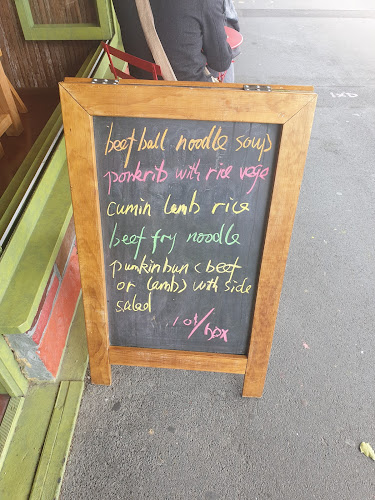 beef ball noodle soup
porkrib with rice vege
cumin lamb rice
beef fry noodle
pumkin bun (beef
or lamb) with side
salad
10$/box